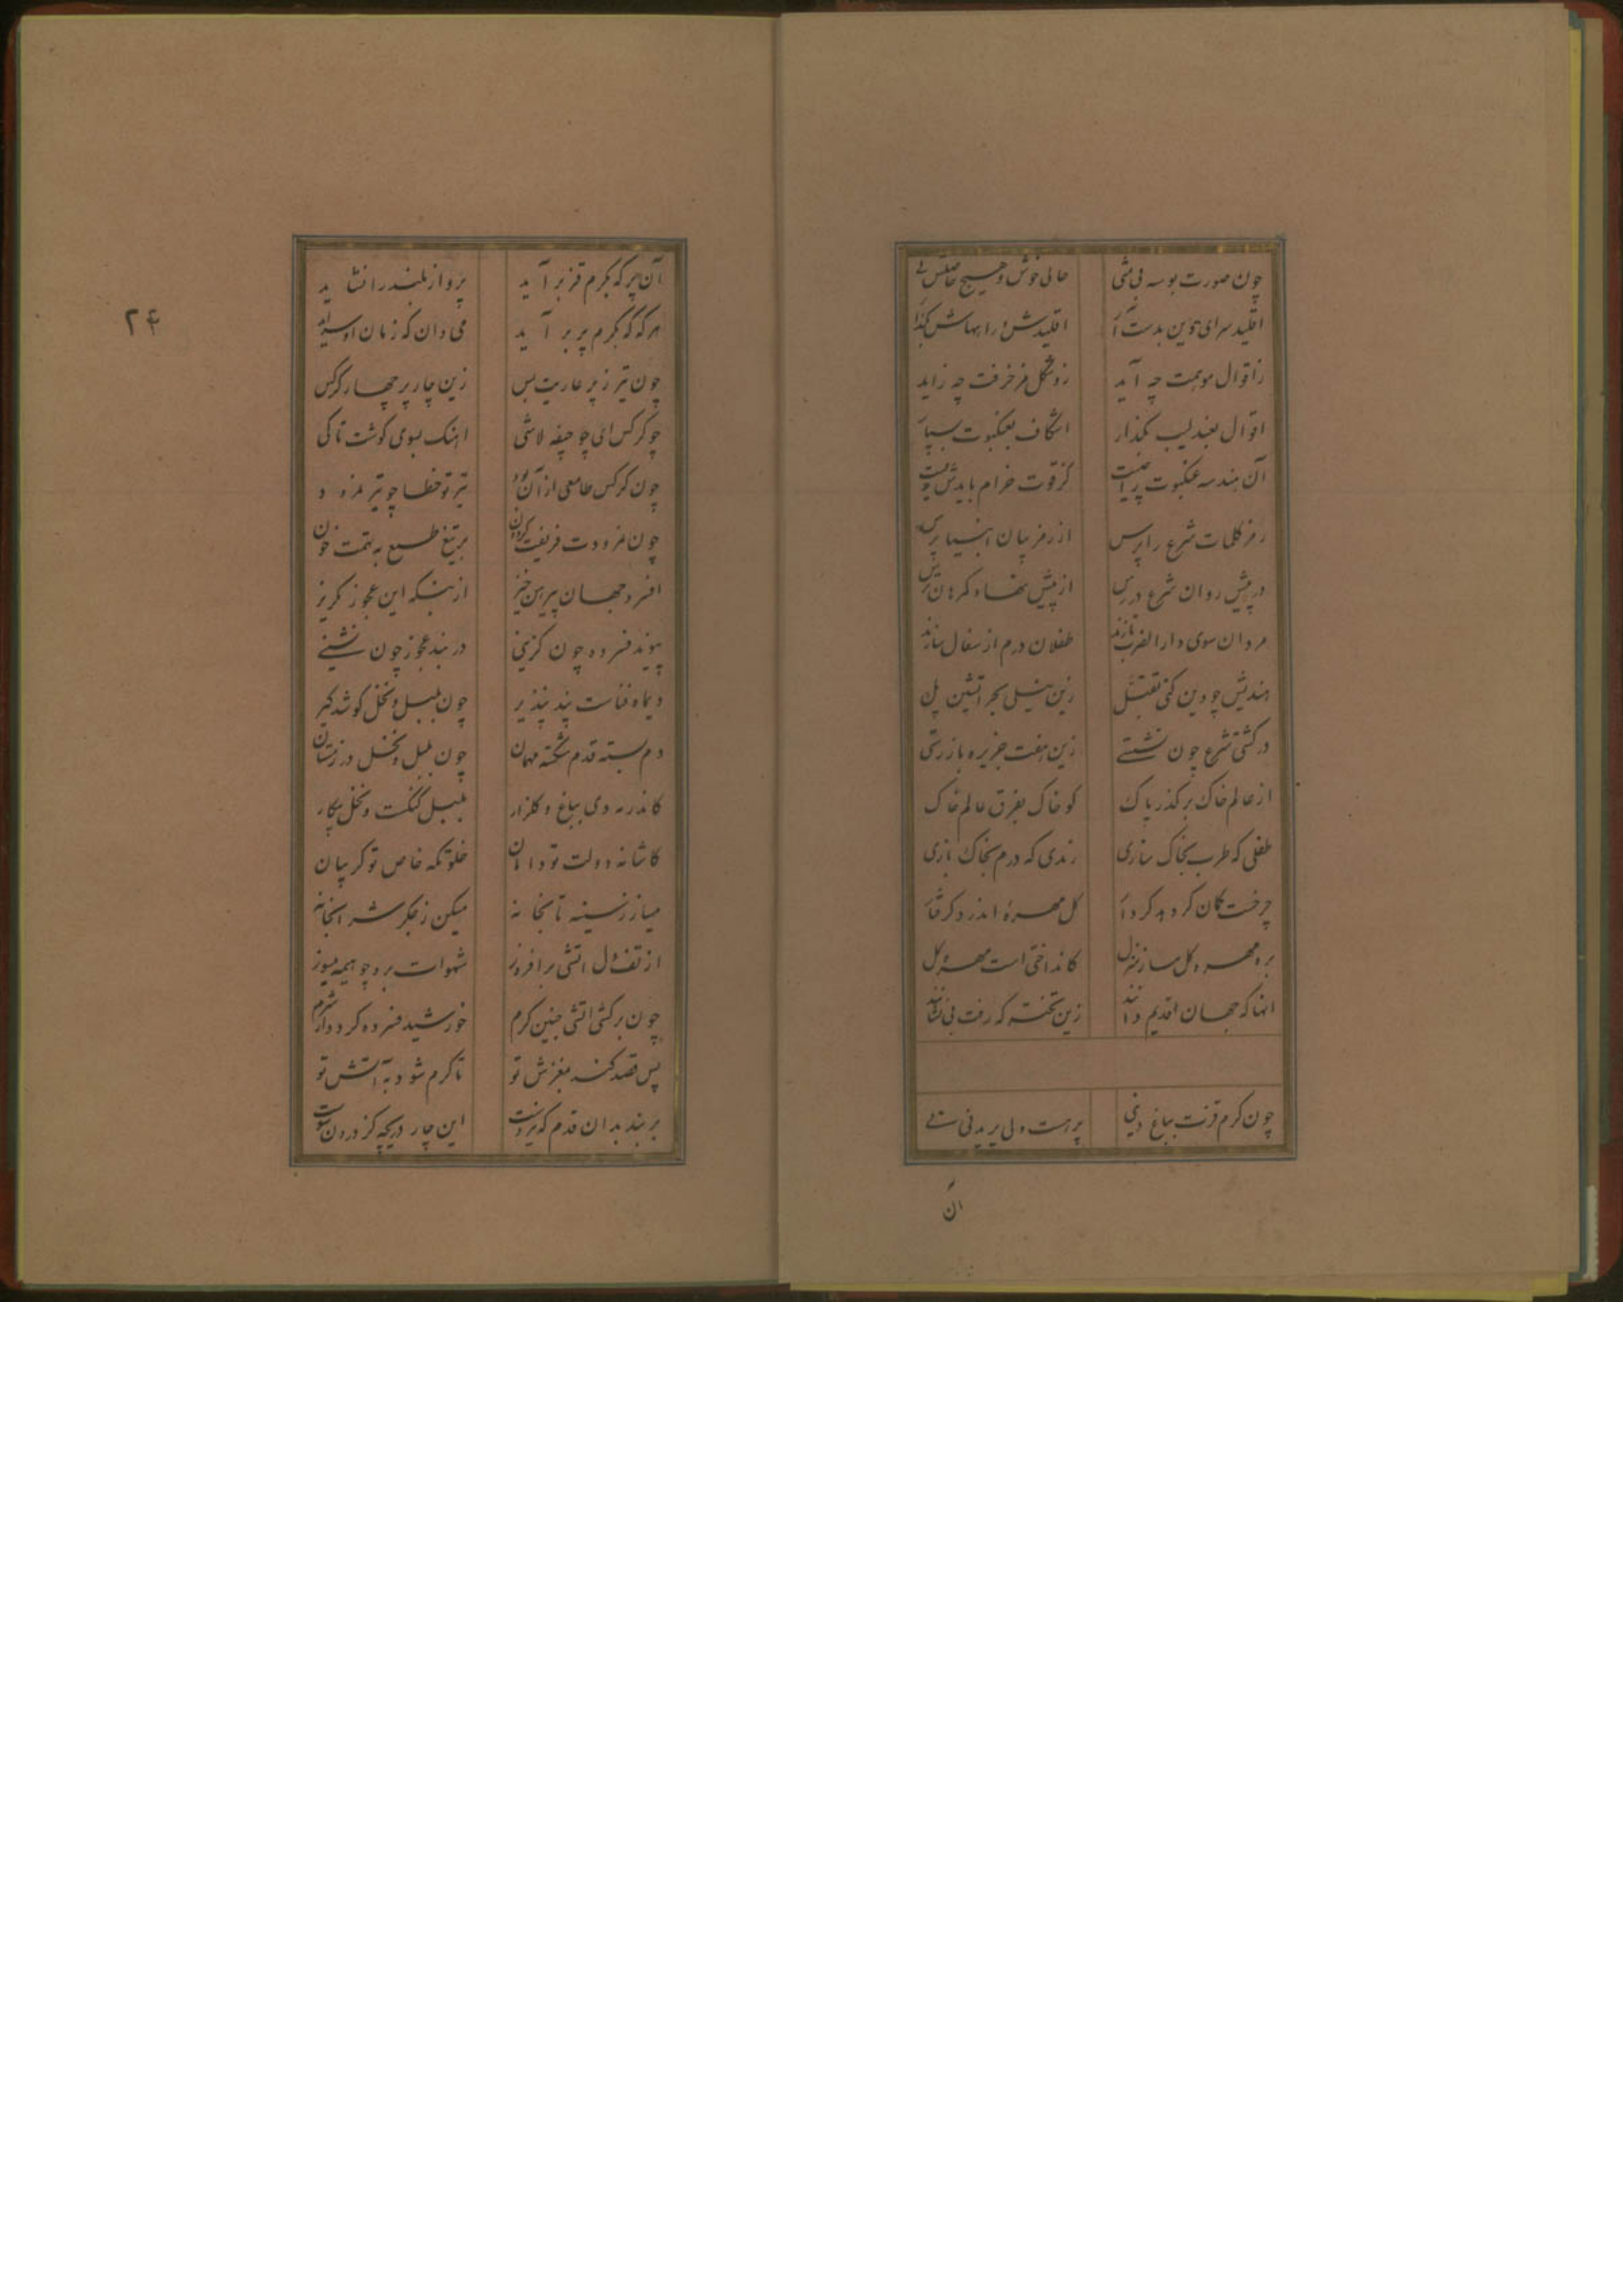 چون صورت بوسه بی مشی حالی خوش و هیچ حاصلش نی
اقلید سرای دین بدست آر اقلیدش را بهاش بگذار
زاقوال موهمت چه آید زوشکل مزخرفت چه زاید
اقوال بعندلیب بگذار اشکاف بعنکبوت بسپار
آن هندسه عنکبوت کز قوت خرام بایدش زیست
رمز کلمات شرع را پرس از رمز بیان انبیا پرس
در پیش روان شرع در رس از پیش نهاد کمرهان ترس
مردان سوی دار الضرب تازند طفلان درم از سفال سازند
بندیش چو دین کنی تقبل زین سیل بحر اتشین پل
در کشتی شرع چون نشستی زین هفت جزیره باز رستی
از عالم خاک برگذر پاک کو خاک بفرق عالم خاک
طفلی که طرب بخاک سازی رندی که درم بخاک بازی
چرخت کمان کروهه کردار گل مهره اندرو گرفتار
بر مهره گل مساز منزل کانداختی است مهره گل
انها که جهان قدیم دانند زین تخته که رفت بی نشانند
چون کرم قزت بباغ دینی پر هست ولی پریدنی نی
آن
۲۴
آن پر که بکرم قز بر آید پرواز بلند را نشاید
هر که که بکرم پر بر آید می دان که زمان او سر آید
چون تیر ز پر عاریت بس زین چار پر چهار کرکس
چو کرکس ای چو جیفه لاشی اهنک بسوی گوشت تا کی
چون کرکس طامعی از آن بود تیر تو خطا چو تیر نمرود
چون نمرودت فریفت گردون بر تیغ طمع به تهمت خون
افسرد جهان پیرهن خیز از بسکه این عجوز بگریز
پیوند فسرده چون گزینی در بند عجوز چون نشینی
دیماه فنات پند بپذیر چون بلبل و نخل گوشه گیر
دم بسته قدم شکسته مهمان چون بلبل و نخل در زمستان
کاندر مه دی بباغ و گلزار بلبل گنگست و نخل بیکار
کاشانه دولت تو دامان خلوتکه خاص تو گریبان
میساز ز سینه تابخانه میکن ز جگر شرابخانه
از تف دل اتشی برافروز شهوات برو چو هیمه میسوز
چون برکشی اتشی چنین گرم خورشید فسرده گردد از شرم
پس قصد کند بغزش تو تا گرم شود به آتش تو
بر بند بدان قدم که نیروست این چار دریچه کز درون سوست